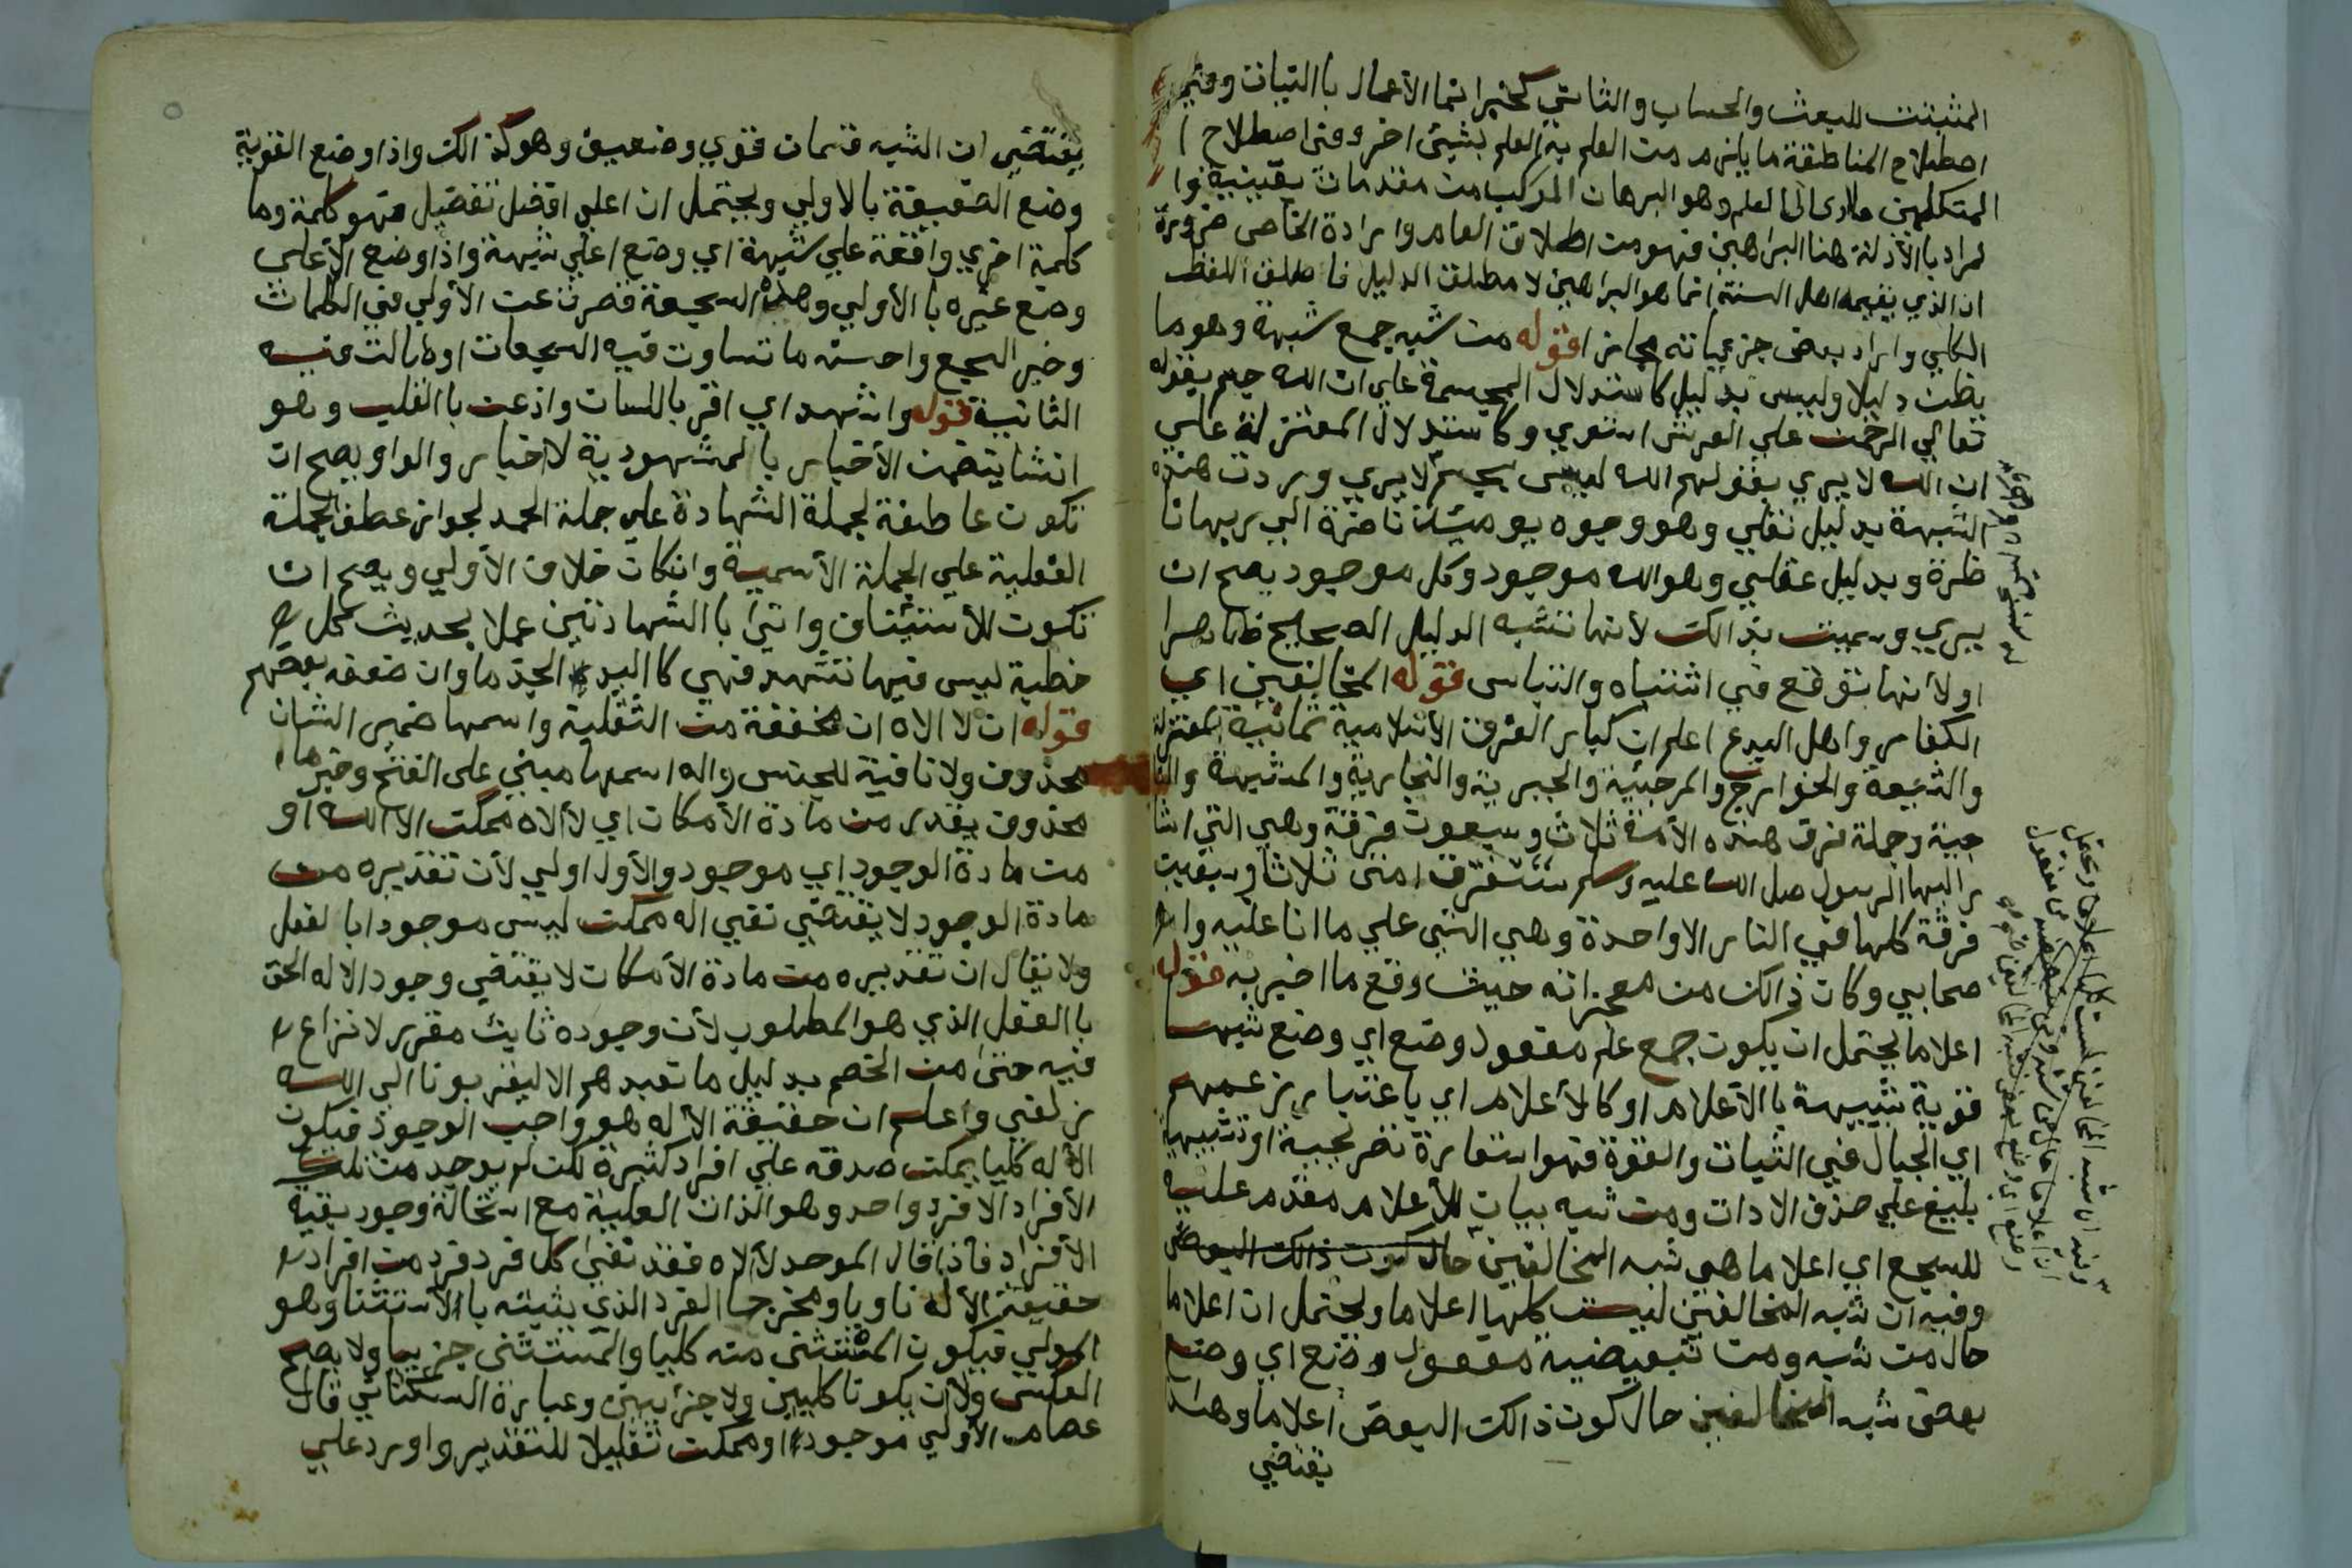 المثبتت للبعث والحساب والثاني كخبر انما الأعمال باالنيات وفي
اصطلاح المناطقة ما يلزم من العلم به العلم بشيئ اخر وفي اصطلاح ا
المتكلمين ما ادى الى العلم وهو البرهان المركب من مقدمات يقينية فوا
لمراد باالأدلة هنا البراهين فهو من اطلاق العام وارادة الخاص ضرورة
ان الذي يقيمه اهل السنة انما هو البراهين لا مطلق الدليل فاطلق اللفظ
الكلي واراد بعض جزئياته مجازا قوله من شبه جمع شبهة وهو ما
يظن دليلا وليس بدليل كاستدلال المجسمة على ان الله جسم بقوله
تعالي الرحمن علي العرش استوي وكاستدلال المعتزلة علي
ان الله لا يري بقولهم الله ليس بجسم لا يري وردت هذه
الشبهة بدليل نقلي وهو وجوه يومئذ ناضرة الي ربها نا
ظرة وبدليل عقلي وهو الله موجود وكل موجود يصح ان
يري وسميت بذالك لأنها تشبه الدليل الصحيح ظاهرا
او لأنها توقع في اشتباه والتباس قوله المخالفين اي
الكفار واهل البدع اعلم ان كبار الفرق الأسلامية ثمانية المعتزلة
والشيعة والخوارج والمرجئية والجبرية والنجارية والمشبهة والنا
جية وجملة فرق هذه الأمة ثلاث وسبعون فرقة وهي التي اشا
ر اليها الرسول صل الله عليه وسلم ستفترق امتي ثلاثا وسبعين
فرقة كلها في النار الا واحدة وهي التي علي ما انا عليه وا
صحابي وكان ذالك من معجزاته حيث وقع ما اخبر به قوله
اعلاما يحتمل ان يكون جمع علم مفعول وضع اي وضع شبها
قوية شبيهة باالأعلام او كالأعلام اي باعتبار زعمهم
اي الجبال في الثبات والقوة فهو استعارة تصريحية او تشبيه
بليغ علي حذف الادات ومن شبه بيان للأعلام مقدم عليه
للسجع اي اعلاما هي شبه المخالفين حال كون ذالك البعض
وفيه ان شبه المخالفين ليست كلها اعلاما ويحتمل ان اعلاما
حال من شبه ومن تبعيضية مفعول وضع اي وضع
بعض شبه المخالفين حال كون ذالك البعض اعلاما وهذا
يقتضي
يقتضي ان الشبه قسمان قوي وضعيف وهو كذالك واذا وضع القوية
وضع الضعيفة بالاولي ويحتمل ان اعلي افضل تفضيل فهو كلمة وما
كلمة اخري واقعة علي شبهة اي وضع اعلي شبهة واذا وضع الأعلي
وضع غيره باالأولي وهذه السجعة قصرت عن الأولي في الكلمات
وخير السجع واحسنه ما تساوت فيه السجعات او طالت فيه
الثانية قوله واشهد اي اقر باللسان واذعن باالقلب وهو
انشا يتضمن الأخبار باالمشهودية لاخبار والواو يصح ان
تكون عاطفة لجملة الشهادة علي جملة الحمد لجواز عطف الجملة
الفعلية علي الجملة الأسمية وانكان خلاف الأولي ويصح ان
تكون للأستئناف واتي باالشهادتين عملا بحديث كل
خطبة ليس فيها تشهد فهي كااليد الجذما وان ضعفه بعضهم
قوله ان لا الاه ان مخففة من الثقلية واسمها ضمير الشان
محذوف ولا نافية للجنس واله اسمها مبني على الفتح وخبرها
محذوف يقدر من مادة الأمكان اي لا الاه ممكن الا الله او
من مادة الوجود اي موجود والأول اولي لأن تقديره من
مادة الوجود لا يقتضي نفي اله ممكن ليس موجودا بالفعل
ولا يقال ان تقديره من مادة الأمكان لا يقتضي وجود الاله الحق
باالفعل الذي هو المطلوب لأن وجوده ثابت مقرر لا نزاع
فيه حتى من الخصم بدليل ما نعبدهم الا ليقربونا الى الله
زلفي واعلم ان حقيقة الأله هو واجب الوجود فيكون
الأله كليا يمكن صدقه علي افراد كثيرة لكن لم يوجد من تلك
الأفراد الا فرد واحد وهو الذات العلية مع استحالة وجود بقية
الأفراد فاذا قال الموحد لا الاه فقد نفي كل فرد فرد من افراد
حقيقة الأله ناويا ومخرجا الفرد الذي يثبته باالأستثنا وهو
المولي فيكون المستثنى منه كليا والمستثنى جزييا ولا يصح
العكس ولأن يكونا كليين ولا جزئيين وعبارة السكتاني قال
عصام الأولي موجود او ممكن تقليلا للتقدير واورد علي